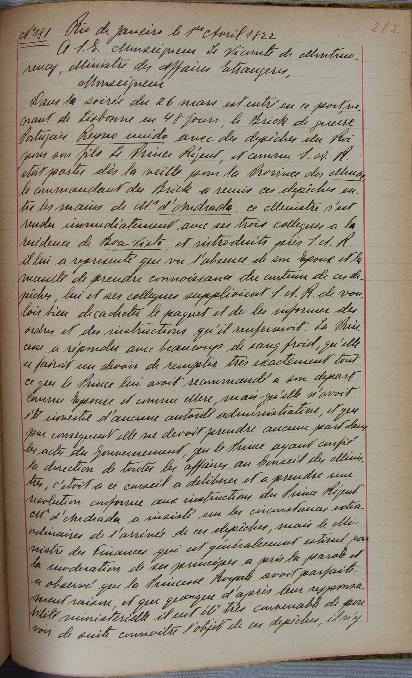 Nº 181 Rio de janeiro le 1er Avril 1822 282
A S. E. Monseigneur Le Vicomte de Montmo-
rency, Ministre des Affaires Etrangeres,
Monseigneur
Dans la soirée du 26 mars est entré en ce port ve-
nant de Lisbonne en 48 jours, le Brick de guerre
Portugais Reyno unido avec des depêches du Roi
pour son fils Le Prince Régent, et comme S. A. R.
etoit partie dès la veille pour la Province des Mines,
le commandant du Brick a remis ces depêches en-
tre les mains de Mr. d'Andrada. ce Ministre s'est
rendu immediatement avec ses trois collegues a la
residence de Boa Vista, et introduits près S. A. R.
il lui a representé que vu l'absence de son Epoux et la
necessité de prendre connoissance du contenu de ces de-
pêches, lui et ses collegues supplioient S. A. R. de vou-
loir bien decacheter le paquet et de les informer des
ordres et des instructions qu'il renfermoit. La Prin-
cesse a répondu avec beaucoup de sang froid, qu'elle
se faisoit un devoir de remplir très exactement tout
ce que le Prince lui avoit recommandé a son depart
comme Epouse et comme mere, mais qu'elle n'avoit
été investie d'aucune autorité administrative, et que
par consequent elle ne devoit prendre aucune part dans
les actes du Gouvernement, que le Prince ayant confié
la direction de toutes les affaires au Conseil des Minis-
tres, c'étoit a ce conseil a deliberer et a prendre une
resolution conforme aux instructions du Prince Régent
Mr. d'Andrada a insisté sur les circonstances extra-
ordinaires de l'arrivée de ces depêches, mais le Mi-
nistre des Finances qui est généralement estimé par
la moderation de ses principes a pris la parole et
a observé que la Princesse Royale avoit parfaite-
ment raison, et que quoique d'après leur responsa-
bilité ministerielle il eut été très convenable de pou-
voir de suite connoitre l'objet de ces depêches, il n'y